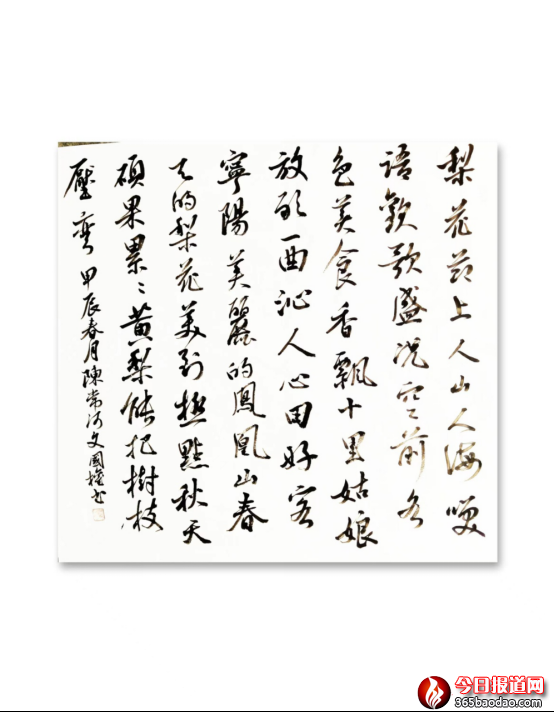 梨花节上人山人海咲
语歡歌盛况空前各
色美食香飄十里姑娘
放歌一曲沁人心田好客
寧陽美麗的鳳凰山春
天的梨花美到極點秋天
碩果累々黄梨能把樹枝
壓彎 甲辰春月陳常河文國權书
今日报道网
365baodao.com